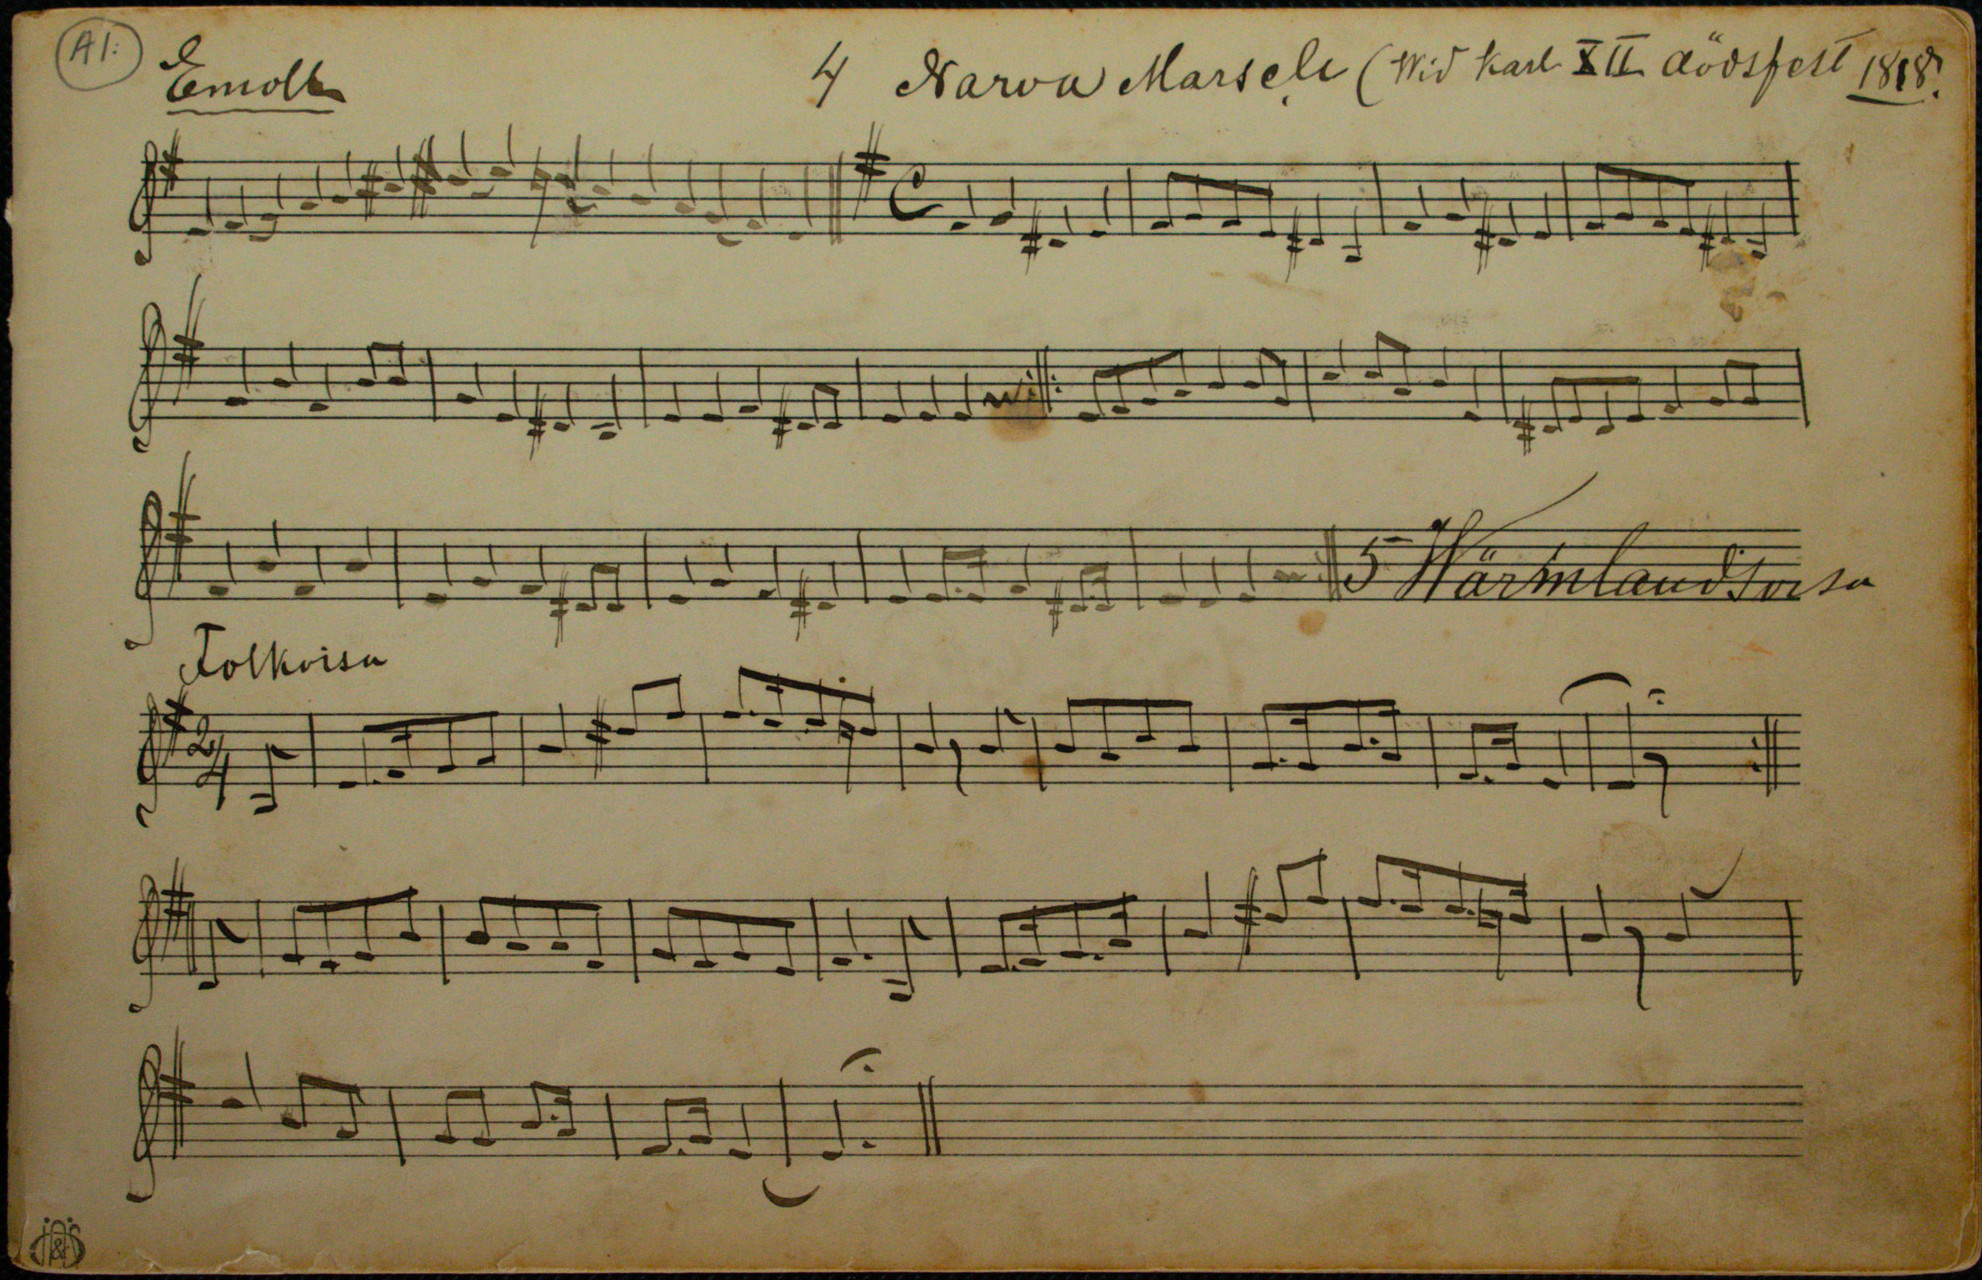 A1:
Emoll
4 Narva Marsch (Wid Karl XII dödsfest 1818.
5 Wärmlandsvisa
Folkvisa
2/4